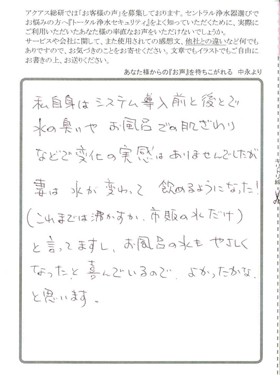 アクアス総研では「お客様の声」を募集しております。セントラル浄水器選びで
お悩みの方へ『トータル浄水セキュリティ』をよく知っていただくために、実際に
ご利用いただいたあなた様の率直なお声をいただけないでしょうか。
サービスや会社に関して、また使用されての感想文、他社との違いなど何でも
ありますので、お気づきのことをお寄せください。文章でもイラストでもご自由に
お書きの上、お送りください。
あなた様からの『お声』を待ちこがれる 中永より
私自身はシステム導入前と後とで
水の臭いや お風呂での肌ざわり
などで変化の実感はありませんでしたが
妻は水が変わって 飲めるようになった!
(これまでは沸かすか、市販の水だけ)
と言ってますし、お風呂の水も やさしく
なったと喜んでいるので、よかったかな
と思います。